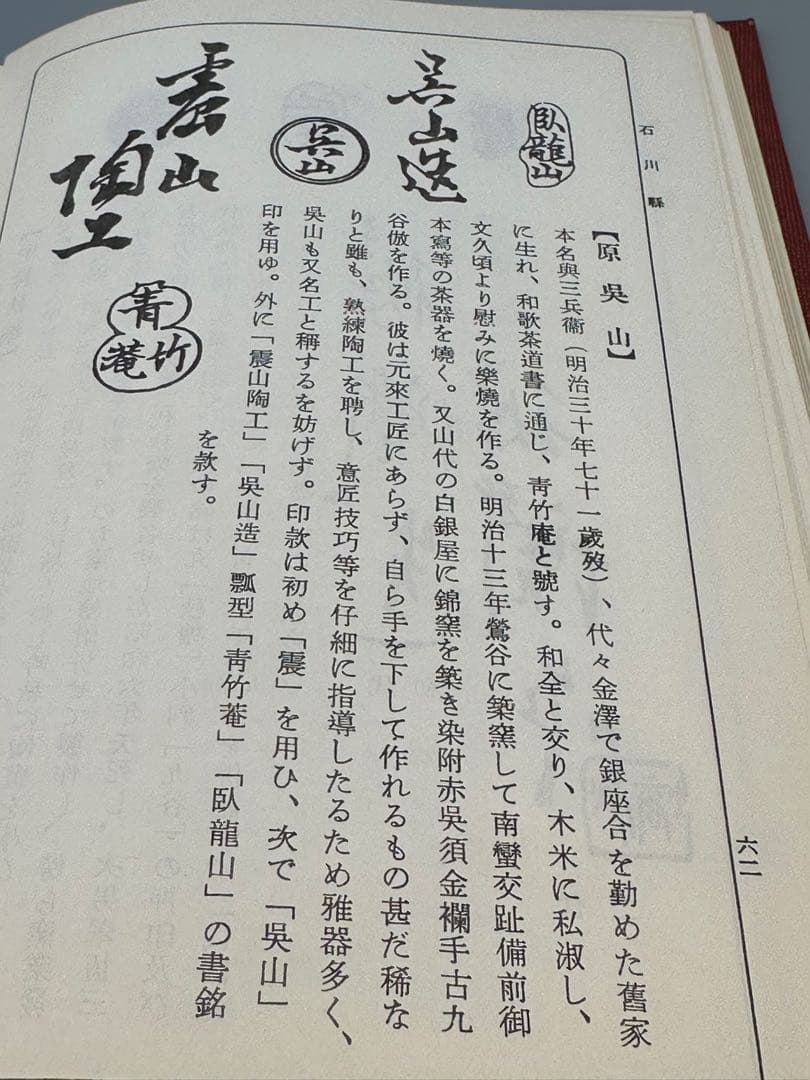 石川縣
臥龍山
吳山造
吳山
震山
陶工
青竹菴
【原吳山】
本名與三兵衞（明治三十年七十一歲歿）、代々金澤で銀座合を勤めた舊家
に生れ、和歌茶道書に通じ、靑竹庵と號す。和全と交り、木米に私淑し、
文久頃より慰みに樂燒を作る。明治十三年鶯谷に築窯して南蠻交趾備前御
本寫等の茶器を燒く。又山代の白銀屋に錦窯を築き染附赤吳須金襴手古九
谷倣を作る。彼は元來工匠にあらず、自ら手を下して作れるもの甚だ稀な
りと雖も、熟練陶工を聘し、意匠技巧等を仔細に指導したるため雅器多く、
吳山も又名工と稱するを妨げず。印款は初め「震」を用ひ、次で「吳山」
印を用ゆ。外に「震山陶工」「吳山造」瓢型「靑竹菴」「臥龍山」の書銘
を款す。
六二